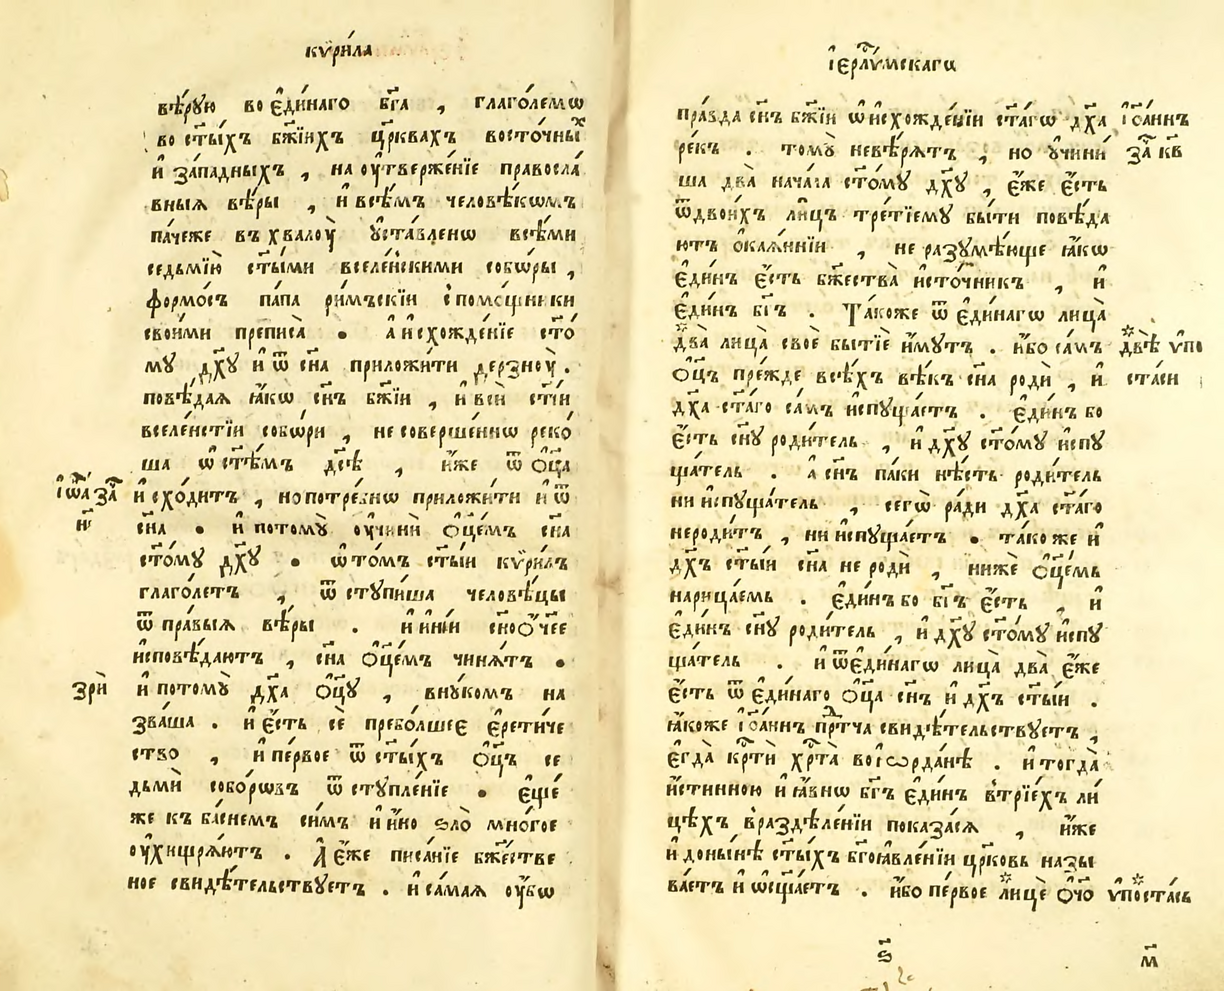 кѷри́ла
вѣ́рую во є҆ди́наго бг҃а , глаго́лемѡ
во ст҃ы́хъ бж҃і́ихъ цр҃квахъ восто́чныⷯ
и҆ за́падныхъ , на ѹ҆твержє́нїе правосла́
вныѧ вѣ́ры , и҆ всѣ́мъ человѣ́кѡмъ
па́чеже въ хвалѹ̀ ᲂуста́вленѡ всѣ́ми
седьмїю̀ ст҃ы́ми вселе́нскими собѡ́ры ,
формо́съ па́па ри́мъскїи с помо́щники
свои́ми преписа̀ . а҆ и҆схожде́нїе ст҃о́
му дх҃у и҆ ѿ сн҃а приложи́ти дерзнѹ̀ .
повѣ́даѧ ꙗ҆́кѡ сн҃ъ бж҃іи , и҆ вси́ ст҃іи
вселе́нстїи собо́ри , не соверше́ннѡ реко́
ша ѡ҆ ст҃ѣ́мъ дс҃ѣ , и҆́же ѿ ѻ҆ц҃а
і҆ѡа҃ за҃
и҆схо́дитъ , но потре́бнѡ приложи́ти и҆ ѿ
н҃і
сн҃а . и҆ потомꙋ̀ ѹ҆чини́ ѻ҆ц҃е́мъ сн҃а
ст҃о́му дх҃у . ѡ҆ то́мъ ст҃ы́и кѷри́лъ
глаго́летъ , ѿступи́ша человѣ́цы
ѿ пра́выѧ вѣ́ры . и҆ и҆ні́и сн҃оѻ҆́чее
и҆сповѣ́даютъ , сн҃а ѻ҆ц҃е́мъ чинѧ́тъ .
зрѝ
и҆ потомꙋ̀ дх҃а ѻ҆ц҃у , внꙋ́комъ на
зва́ша . и҆ є҆́сть сѐ пребо́лшеє є҆рети́че
ство , и҆ пе́рвое ѿ ст҃ы́хъ ѻ҆ц҃ъ се
дьмѝ собо́рѡвъ ѿступле́нїе . є҆щє́
же къ ба́снемъ си́мъ и҆ и҆́но ѕло̀ мно́гое
ѹ҆хищрѧ́ютъ . А҆ є҆́же писа́нїе бж҃е́стве
ное свидѣ́тельствꙋетъ . и҆ са́маѧ ѹ҆́бѡ
і҆ерⷭ҇лѵ́мскагѡ
пра́вда сн҃ъ бж҃іи ѡ҆ и҆схожде́нїи ст҃а́гѡ дх҃а і҆ѻа́ннъ
ре́къ . томꙋ̀ невѣ́рѧтъ , но ᲂучини́ за҃ кв҃
ша два̀ нача́ла ст҃о́му дх҃у , є҆́же є҆́сть
ѿ двои́хъ ли́цъ тре́тїему бы́ти повѣ́да
ютъ ѻ҆каѧ́ннїи , не разꙋмѣ́юще ꙗ҆́кѡ
є҆ди́нъ є҆́сть бж҃ества̀ и҆сто́чникъ , и҆
є҆ди́нъ бг҃ъ . Та́коже ѿ є҆ди́нагѡ лица̀
два̀ лица̀ своѐ бытїѐ и҆́мутъ . и҆́бо са́мъ двѣ̀ ѵ҆по
ѻ҆ц҃ъ пре́жде всѣ́хъ вѣ́къ сн҃а родѝ , и҆ ста́си
дх҃а ст҃а́го са́мъ и҆спꙋща́етъ . є҆ди́нъ бо
є҆́сть сн҃у роди́тель , и҆ дх҃у ст҃о́му и҆спꙋ
ща́тель . а҆ сн҃ъ па́ки нѣ́сть роди́тель
ни и҆спꙋща́тель , сегѡ̀ ра́ди дх҃а ст҃а́го
нероди́тъ , ни и҆спꙋща́етъ . та́коже и҆
дх҃ъ ст҃ы́и сн҃а не родѝ , нижѐ ѻ҆ц҃е́мъ
нарица́емь . є҆ди́нъ бо бг҃ъ є҆́сть , и҆
є҆ди́нъ сн҃у роди́тель , и҆ дх҃у ст҃о́му и҆спꙋ
ща́тель . и҆ ѿ є҆ди́нагѡ лица̀ два̀ є҆́же
є҆́сть ѿ є҆ди́наго ѻ҆ц҃а сн҃ъ и҆ дх҃ъ ст҃ы́и .
ꙗ҆́коже і҆ѻа́ннъ прⷣтча свидѣ́тельствꙋетъ ,
є҆гда̀ крⷭ҇ти́ хрⷭ҇та̀ во і҆ѻрда́нѣ . и҆ тогда̀
и҆́стинною и҆ ꙗ҆́внѡ бг҃ъ є҆ди́нъ в трїе́хъ ли́
цѣхъ в раздѣле́нїи показа́сѧ , и҆́же
и҆ доны́нѣ ст҃ы́хъ бг҃оꙗвле́нїи цр҃ковь назы
ва́етъ и҆ ѡ҆сщ҃а́етъ . и҆́бо пе́рвое лицѐ ѻ҆́ч҃о ѵ҆поста́сь
ѕ҃ м҃